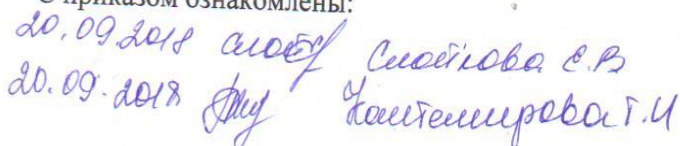 С приказом ознакомлены:
20.09.2018 Е.В
20.09.2018 Кантемирова Т.И